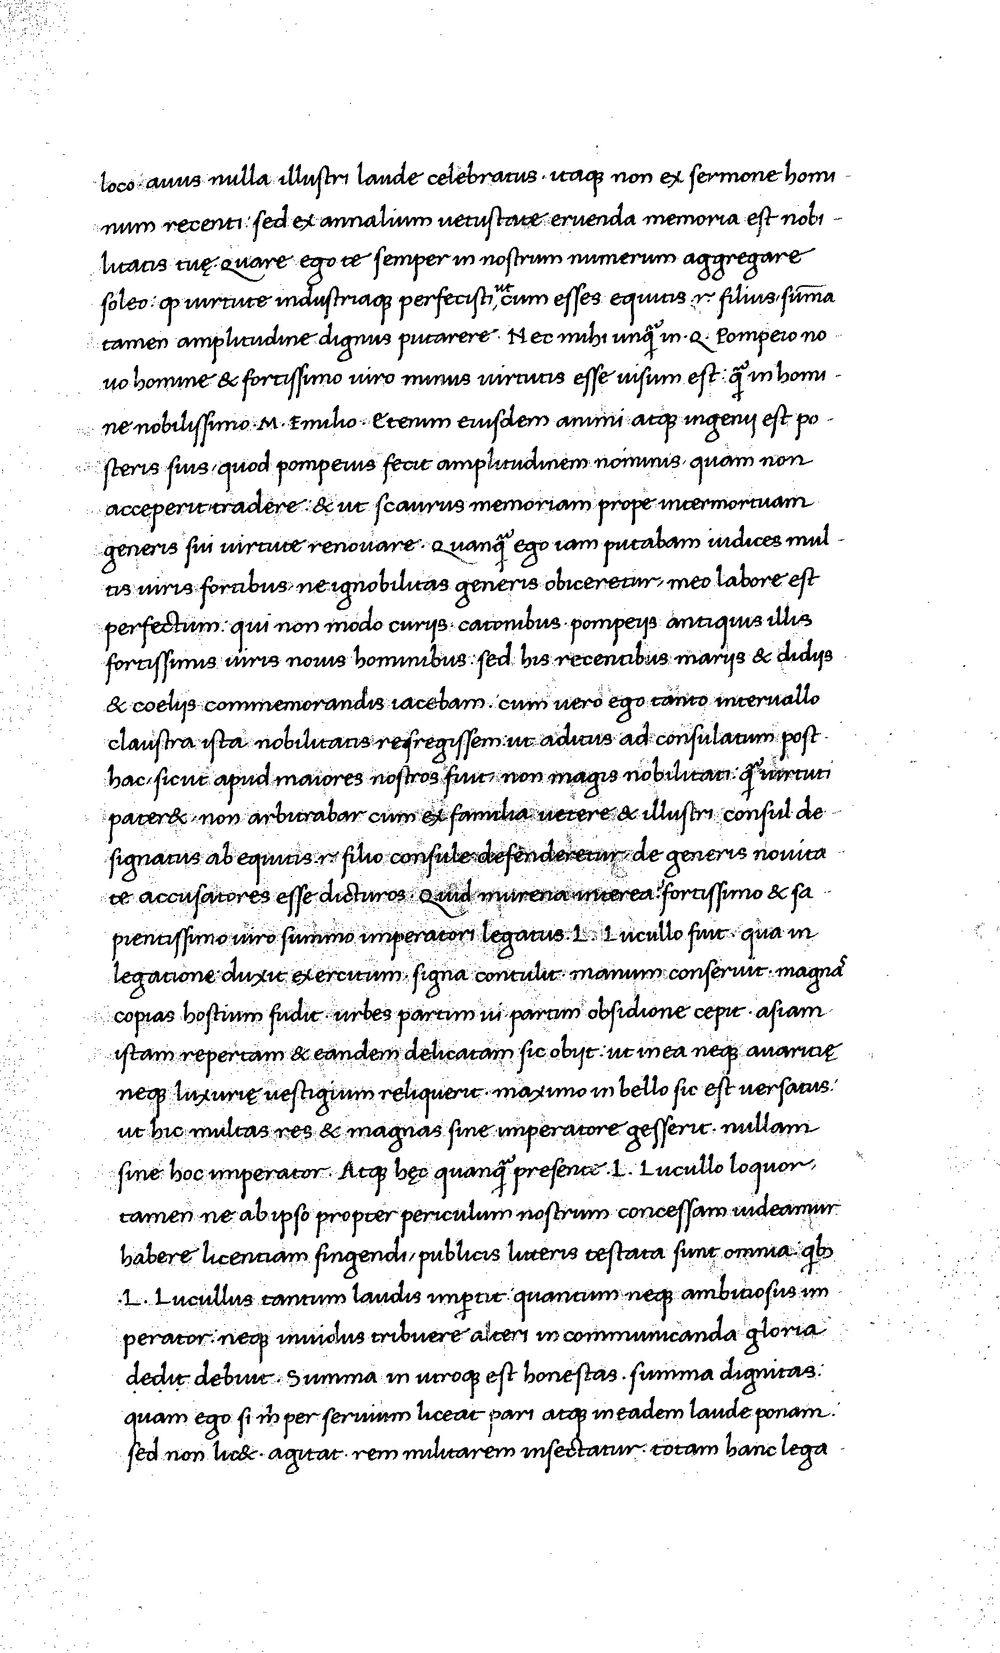 loco auus nulla illustri laude celebratus · itaqꝫ non ex sermone homi-
num recenti: sed ex annalium uetustate eruenda memoria est nobi-
litatis tuę. Quare ego te semper in nostrum numerum aggregare
soleo: qꝫ uirtute industriaqꝫ perfecisti, ut cum esses equitis .r. filius, sum̅a
tamen amplitudine dignus putarere. Nec mihi unq̃ in .Q. Pompeio no
uo homine & fortissimo uiro minus uirtutis esse uisum est: q̃ in homi-
ne nobilissimo .M. Emilio. Etenim eiusdem animi atqꝫ ingenij est po-
steris suis, quod pompeius fecit amplitudinem nominis, quam non
acceperit tradere: & ut scaurus memoriam prope intermortuam
generis sui uirtute renouare. Quanq̃ ego iam putabam iudices mul-
tis uiris fortibus, ne ignobilitas generis obiceretur, meo labore est
perfectum: qui non modo curijs· catonibus· pompeijs antiquis illis
fortissimis uiris nouis hominibus: sed his recentibus marijs & didijs
& coelijs commemorandis iacebam. cum uero ego tanto interuallo
claustra ista nobilitatis refregissem: ut aditus ad consulatum post
hac, sicut apud maiores nostros fuit, non magis nobilitati: q̃ uirtuti
pater&, non arbitrabar cum ex familia uetere & illustri consul de
signatus ab equitis .r. filio consule defenderetur, de generis nouita
te accusatores esse dicturos. Quid murena interea? fortissimo & sa
pientissimo uiro summo imperatori legatus .L. Lucullo fuit· qua in
legatione duxit exercitum· signa contulit· manum conseruit· magnā
copias hostium fudit· urbes partim ui partim obsidione cepit· asiam
istam repertam & eandem delicatam sic obijt: ut in ea neqꝫ auaritię
neqꝫ luxurię uestigium reliquerit· maximo in bello sic est uersatus:
ut hic multas res & magnas sine imperatore gesserit· nullam
sine hoc imperator. Atqꝫ hęc quanq̃ presente .L. Lucullo loquor,
tamen ne ab ipso propter periculum nostrum concessam uideamur
habere licentiam fingendi, publicis litteris testata sunt omnia: qb
.L. Lucullus tantum laudis imp̱tit quantum neqꝫ ambitiosus im
perator: neqꝫ inuidus tribuere alteri in communicanda gloria
dedit debuit. Summa in utroqꝫ est honestas· summa dignitas:
quam ego si m̊ per seruium liceat pari atqꝫ in eadem laude ponam:
sed non lic&· agitat· rem militarem insectatur· totam hanc lega